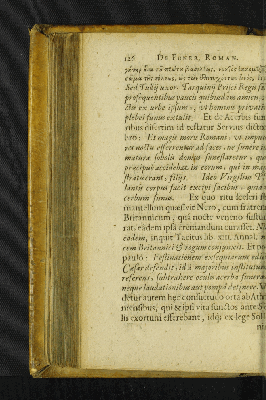 126 DE FUNER. ROMAN.
Sed Tullij uxor, Tarquinij Prisci Regis fi
prosequentibus paucis quibusdam amicis,
cta ex urbe ipsum, ut hominem privatum
plebei funus extulit. Et de Acerbis fun
ribus disertim id testatur Servius dictus
bro: Et magis moro Romano, ut impub
res noctu efferrentur ad faces, ne funere
matura sobolis domus funestaretur: qua
præcipuè accidebat in eorum, qui in mag
stratu erant, filijs. Ideo Virgilius P
lantis corpus facit excipi facibus, quia
cerbum funus. Ex quo ritu sceleri
mantellum quæsivit Nero, cum fratrem
Britannicum, quâ nocte veneno sustu
rat, eâdem ipsâ cremandum curasset. N
eadem, inquit Tacitus lib. XIII. Annal.
cem Britannici & rogum conjunxit. Et po
paulò: Festinationem exequiarum edi
Cæsar defendit, id à majoribus institutu
referens, subtrahere oculis acerba funera
neque laudationibus aut pompâ detinere.
detur autem hec consuetudo orta ab Athe
niensibus, qui & ipsi vitâ functos ante S
lis exortum efferebant, idq; ex lege Sol